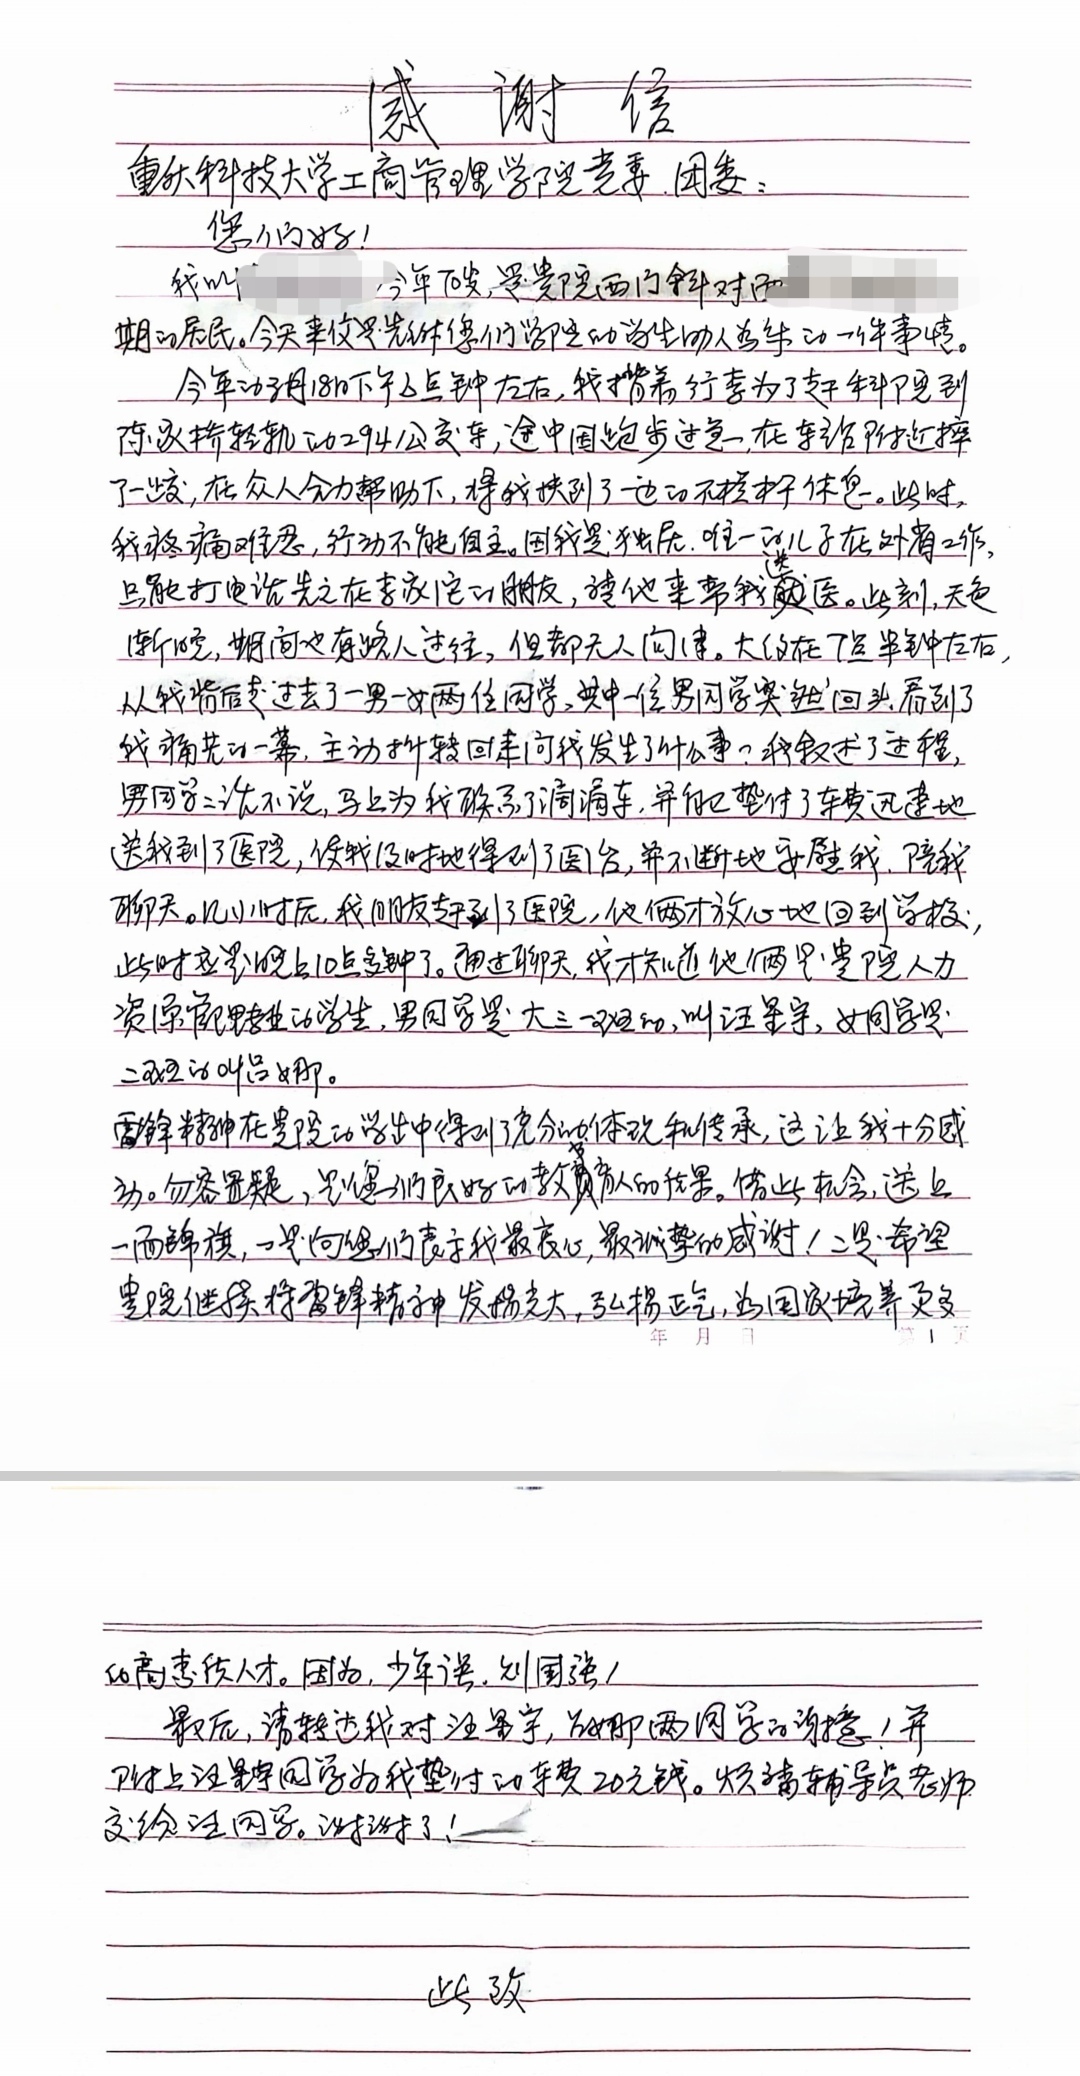 感谢信
重庆科技大学工商管理学院党委、团委:
您们好!
我叫 ,今年70岁,是贵院西门斜对面
期的居民。今天来仅是先供您们学院的学生助人为乐的一件事情。
今年的3月18日下午6点钟左右,我揹着行李为了赶科院到
陈家桥轻轨的294公交车,途中因跑步过急,在车站附近摔
了一跤,在众人合力帮助下,将我扶到了一边的不橙木于休息。此时,
我疼痛难忍,行动不能自主。因我是独居,唯一的儿子在外省工作,
只能打电话先之在李家沱的朋友,请他来帮我送医。此刻,天色
渐晚,期间也有路人过往,但都无人问津。大约在7点半钟左右,
从我背后走过去了一男一女两位同学,其中一位男同学突然回头看到了
我痛苦的一幕,主动折转回来问我发生了什么事?我叙述了过程,
男同学二话不说,马上为我联系了滴滴车,并自己垫付了车费迅速地
送我到了医院,使我及时地得到了医治,并不断地安慰我、陪我
聊天。几小时后,我朋友赶到了医院,他俩才放心地回到学校,
此时应是晚上10点多钟了。通过聊天,我才知道他俩是贵院人力
资源管理专业的学生,男同学是大三一班的,叫汪星宇,女同学是
二班的叫吕娜。
雷锋精神在贵院的学生中得到了充分的体现和传承,这让我十分感
动。勿容置疑,是您们良好的教书育人的结果。借此机会,送上
一面锦旗,一是向您们表示我最衷心,最诚挚的感谢!二是希望
贵院继续将雷锋精神发扬光大,弘扬正气,为国家培养更多
年 月 日 第1页
的高素质人才。因为,少年强,则国强!
最后,请转达我对汪星宇,吕娜两同学的谢意!并
附上汪星宇同学为我垫付的车费20元钱。烦请辅导员老师
交给汪同学。谢谢了!
此致